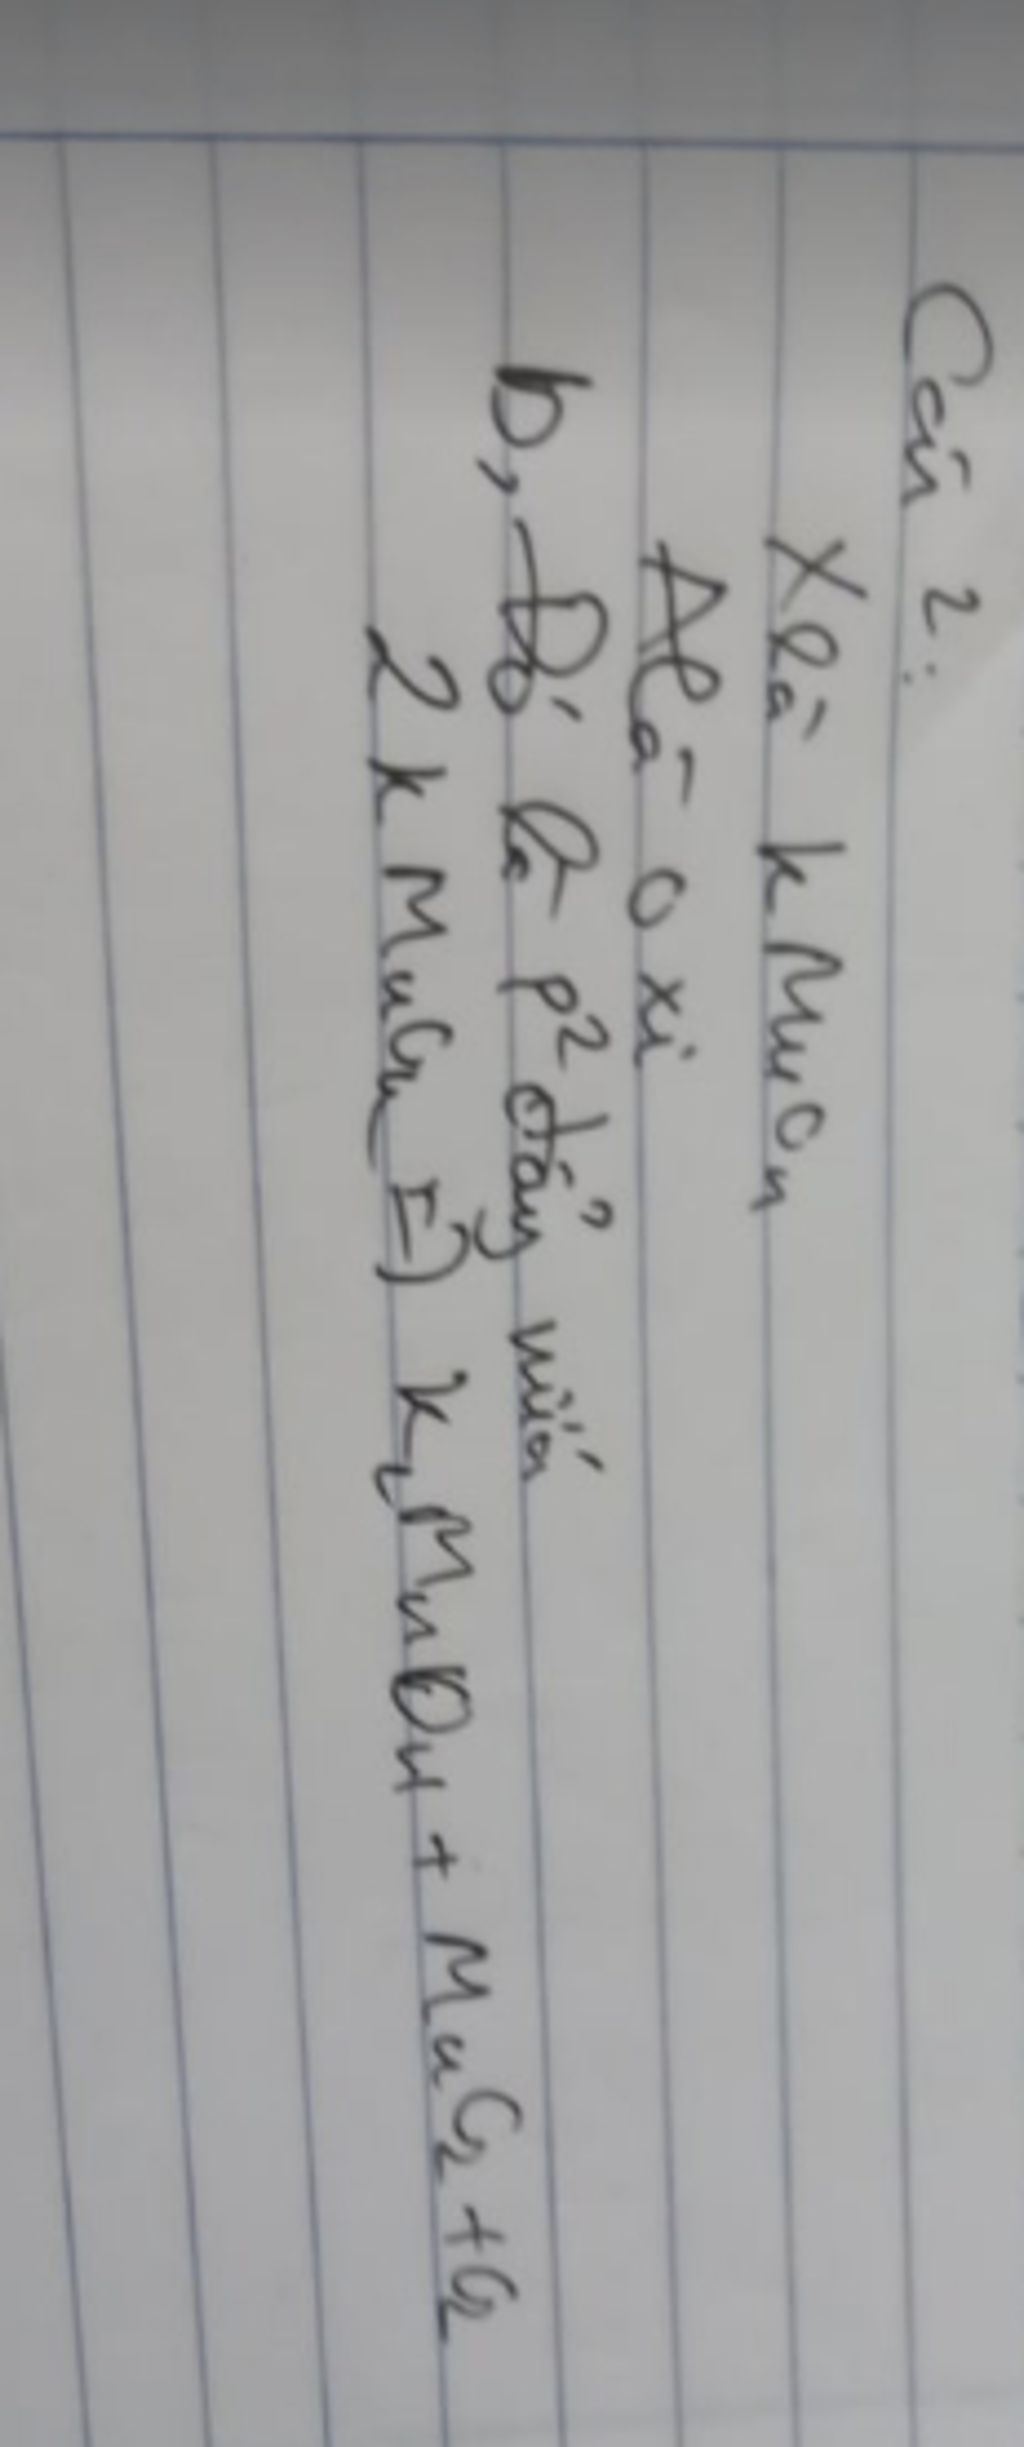 Câu 2:
X là kMnO4
A là oxi
b, Đó là p² đẩy nước
2kMnO4 => k2MnO4 + MnO2 + O2